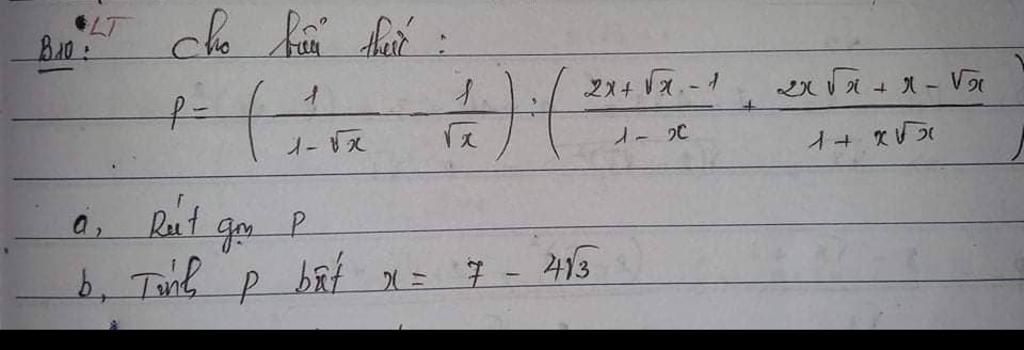 LT
B10: Cho biểu thức:
P = ( 1/(1-√x) - 1/√x ) : ( (2x+√x-1)/(1-x) + (2x√x+x-√x)/(1+x√x) )
a, Rút gọn P
b, Tính P biết x = 7 - 4√3